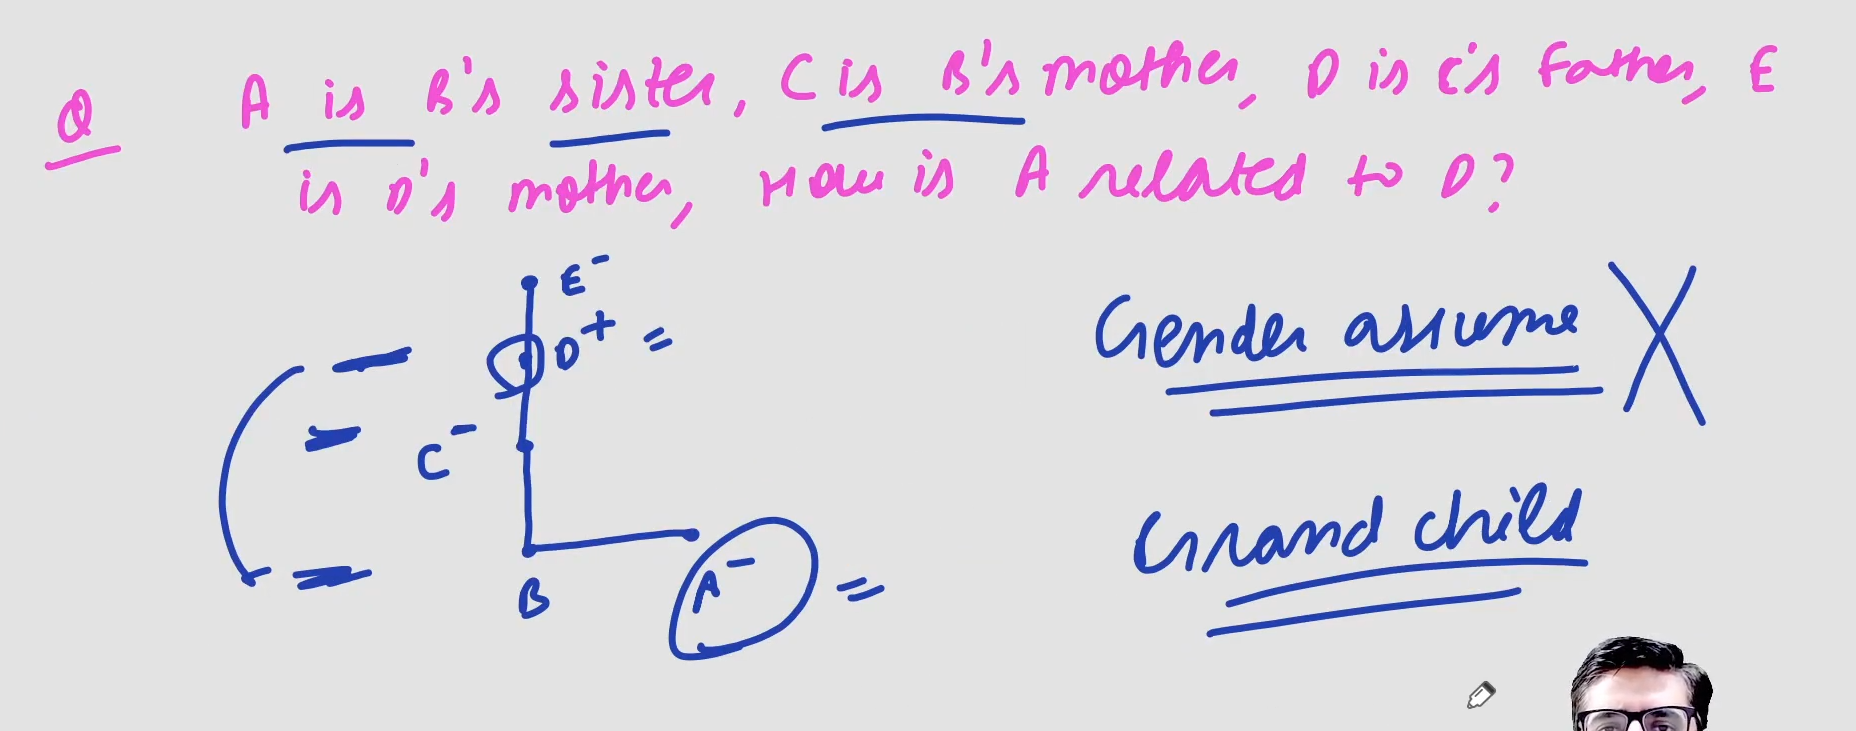 Q A is B's sister, C is B's mother, D is C's Father, E
is D's mother, How is A related to D?
E-
D+ =
C-
B
A- =
Gender assume X
Grand child